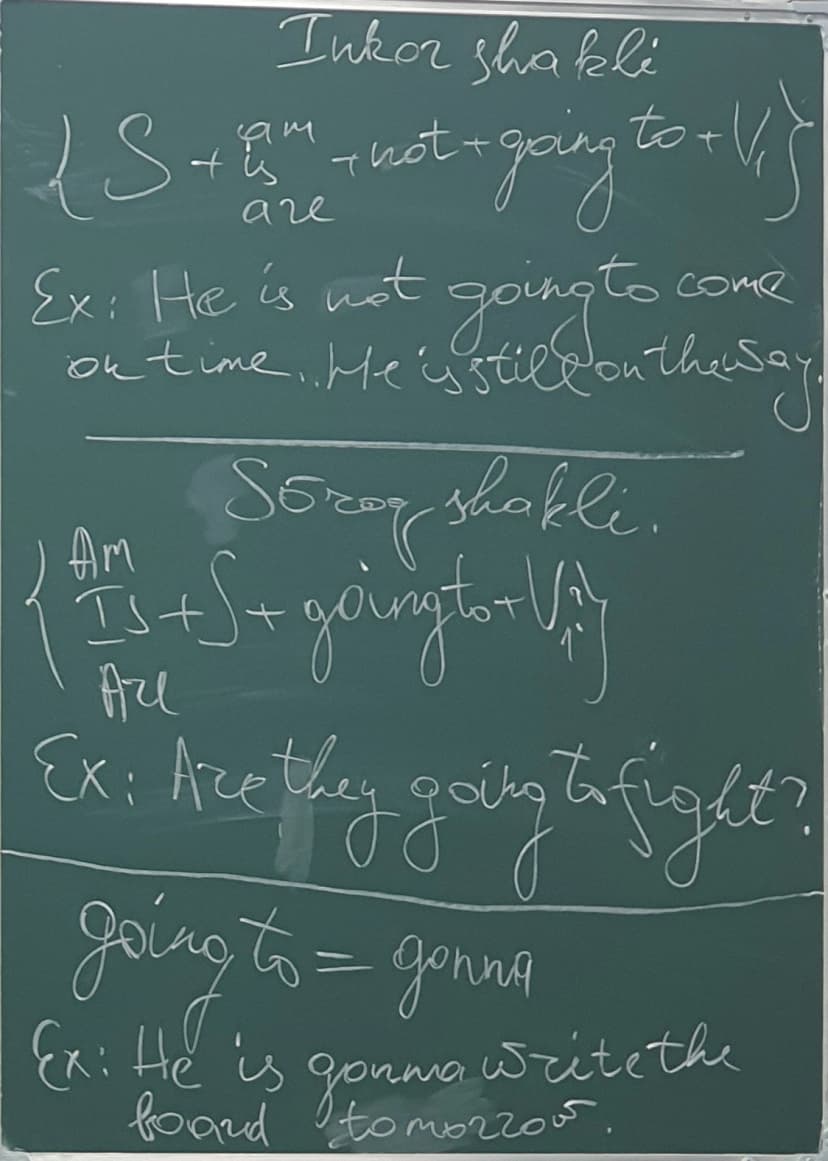 Inkor shakli
{S + am
is
are + not + going to + V₁}
Ex: He is not going to come
on time. He is still on the way.
Sōroq shakli.
{Am
Is
Are + S + going to + V₁?}
Ex: Are they going to fight?
going to = gonna
Ex: He is gonna write the
board tomorrow.